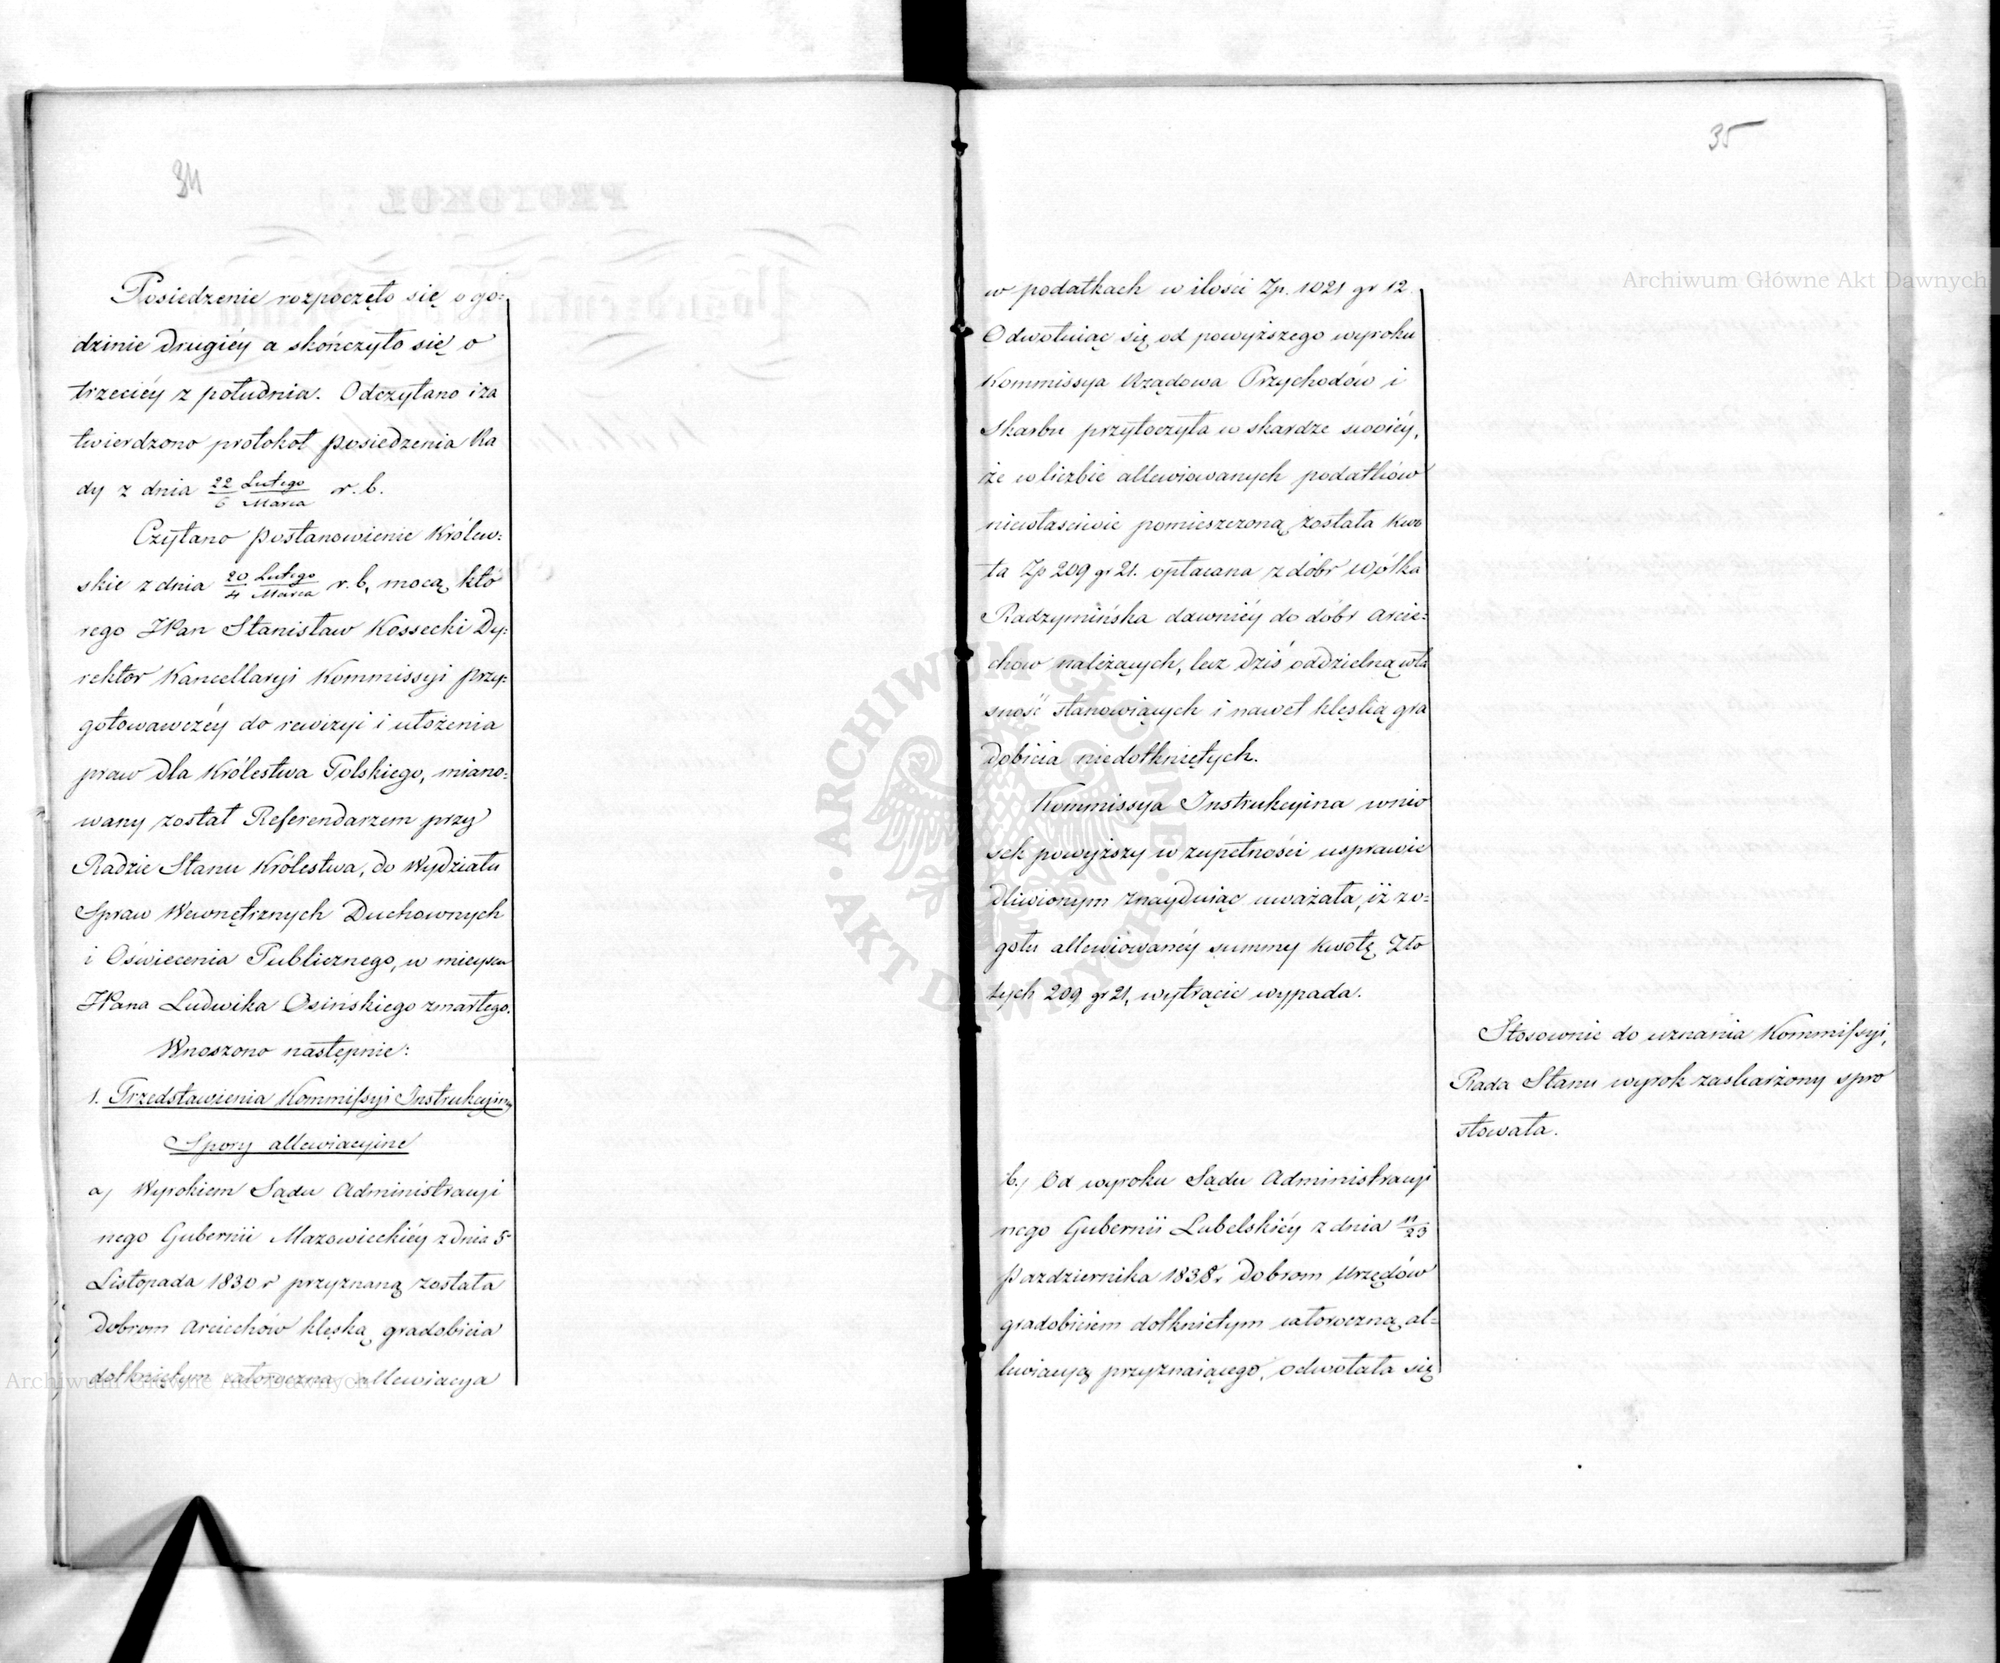 34
Posiedzenie rozpoczęło się o go:
dzinie drugiéy a skończyło się o
trzeciéy z południa. Odczytano i za
twierdzono protokół posiedzenia Ra
dy z dnia 22 Lutego / 6 Marca r. b.
Czytano postanowienie Królew:
skie z dnia 20 Lutego / 4 Marca r. b, mocą któ
rego JPan Stanisław Kossecki Dy:
rektor Kancellaryi Kommissyi przy:
gotowawczéy do rewizyi i ułożenia
praw dla Królestwa Polskiego, miano:
wany został Referendarzem przy
Radzie Stanu Królestwa, do Wydziału
Spraw Wewnętrznych Duchownych
i Oświecenia Publicznego, w mieyscu
JPana Ludwika Osińskiego zmarłego.
Wnoszono następnie:
1. Przedstawienia Kommissyi Instrukcyiny
Spory allewiacyine
a, Wyrokiem Sądu Administracyi
nego Gubernii Mazowieckiéy z dnia 5
Listopada 1830 r przyznaną została
Dobrom Arciechów klęską gradobicia
dotkniętym całoroczna allewiacya
35
w podatkach w ilości Zp. 1021 gr 12.
Odwołuiąc się od powyższego wyroku
Kommissya Rządowa Przychodów i
Skarbu przytoczyła w skardze swoiéy,
że w liczbie allewiowanych podatków
niewłaściwie pomieszczoną została kwo
ta Zp 209 gr 21. opłacana z dóbr Wólka
Radzymińska dawniéy do dóbr Arcie:
chów należących, lecz dziś oddzielną wła
sność stanowiących i nawet klęską gra
dobicia niedotkniętych.
Kommissya Instrukcyina wnio
sek powyższy w zupełności usprawie
dliwionym znayduiąc uważała, iż z o:
gółu allewiowanéy summy kwotę Zło
tych 209 gr 21, wytrącić wypada.
Stosownie do uznania Kommissyi,
Rada Stanu wyrok zaskarżony spro
stowała.
b, Od wyroku Sądu Administracyi
nego Gubernii Lubelskiéy z dnia 11/23
Października 1838 r Dobrom Urzędów
gradobiciem dotkniętym całoroczną al=
lewiacyą przyznaiącego, odwołała się
Archiwum Główne Akt Dawnych
Archiwum Główne Akt Dawnych
ARCHIWUM GŁÓWNE AKT DAWNYCH